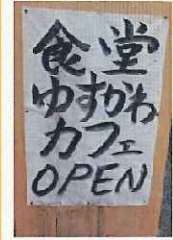 食堂
ゆすかわ
カフェ
OPEN